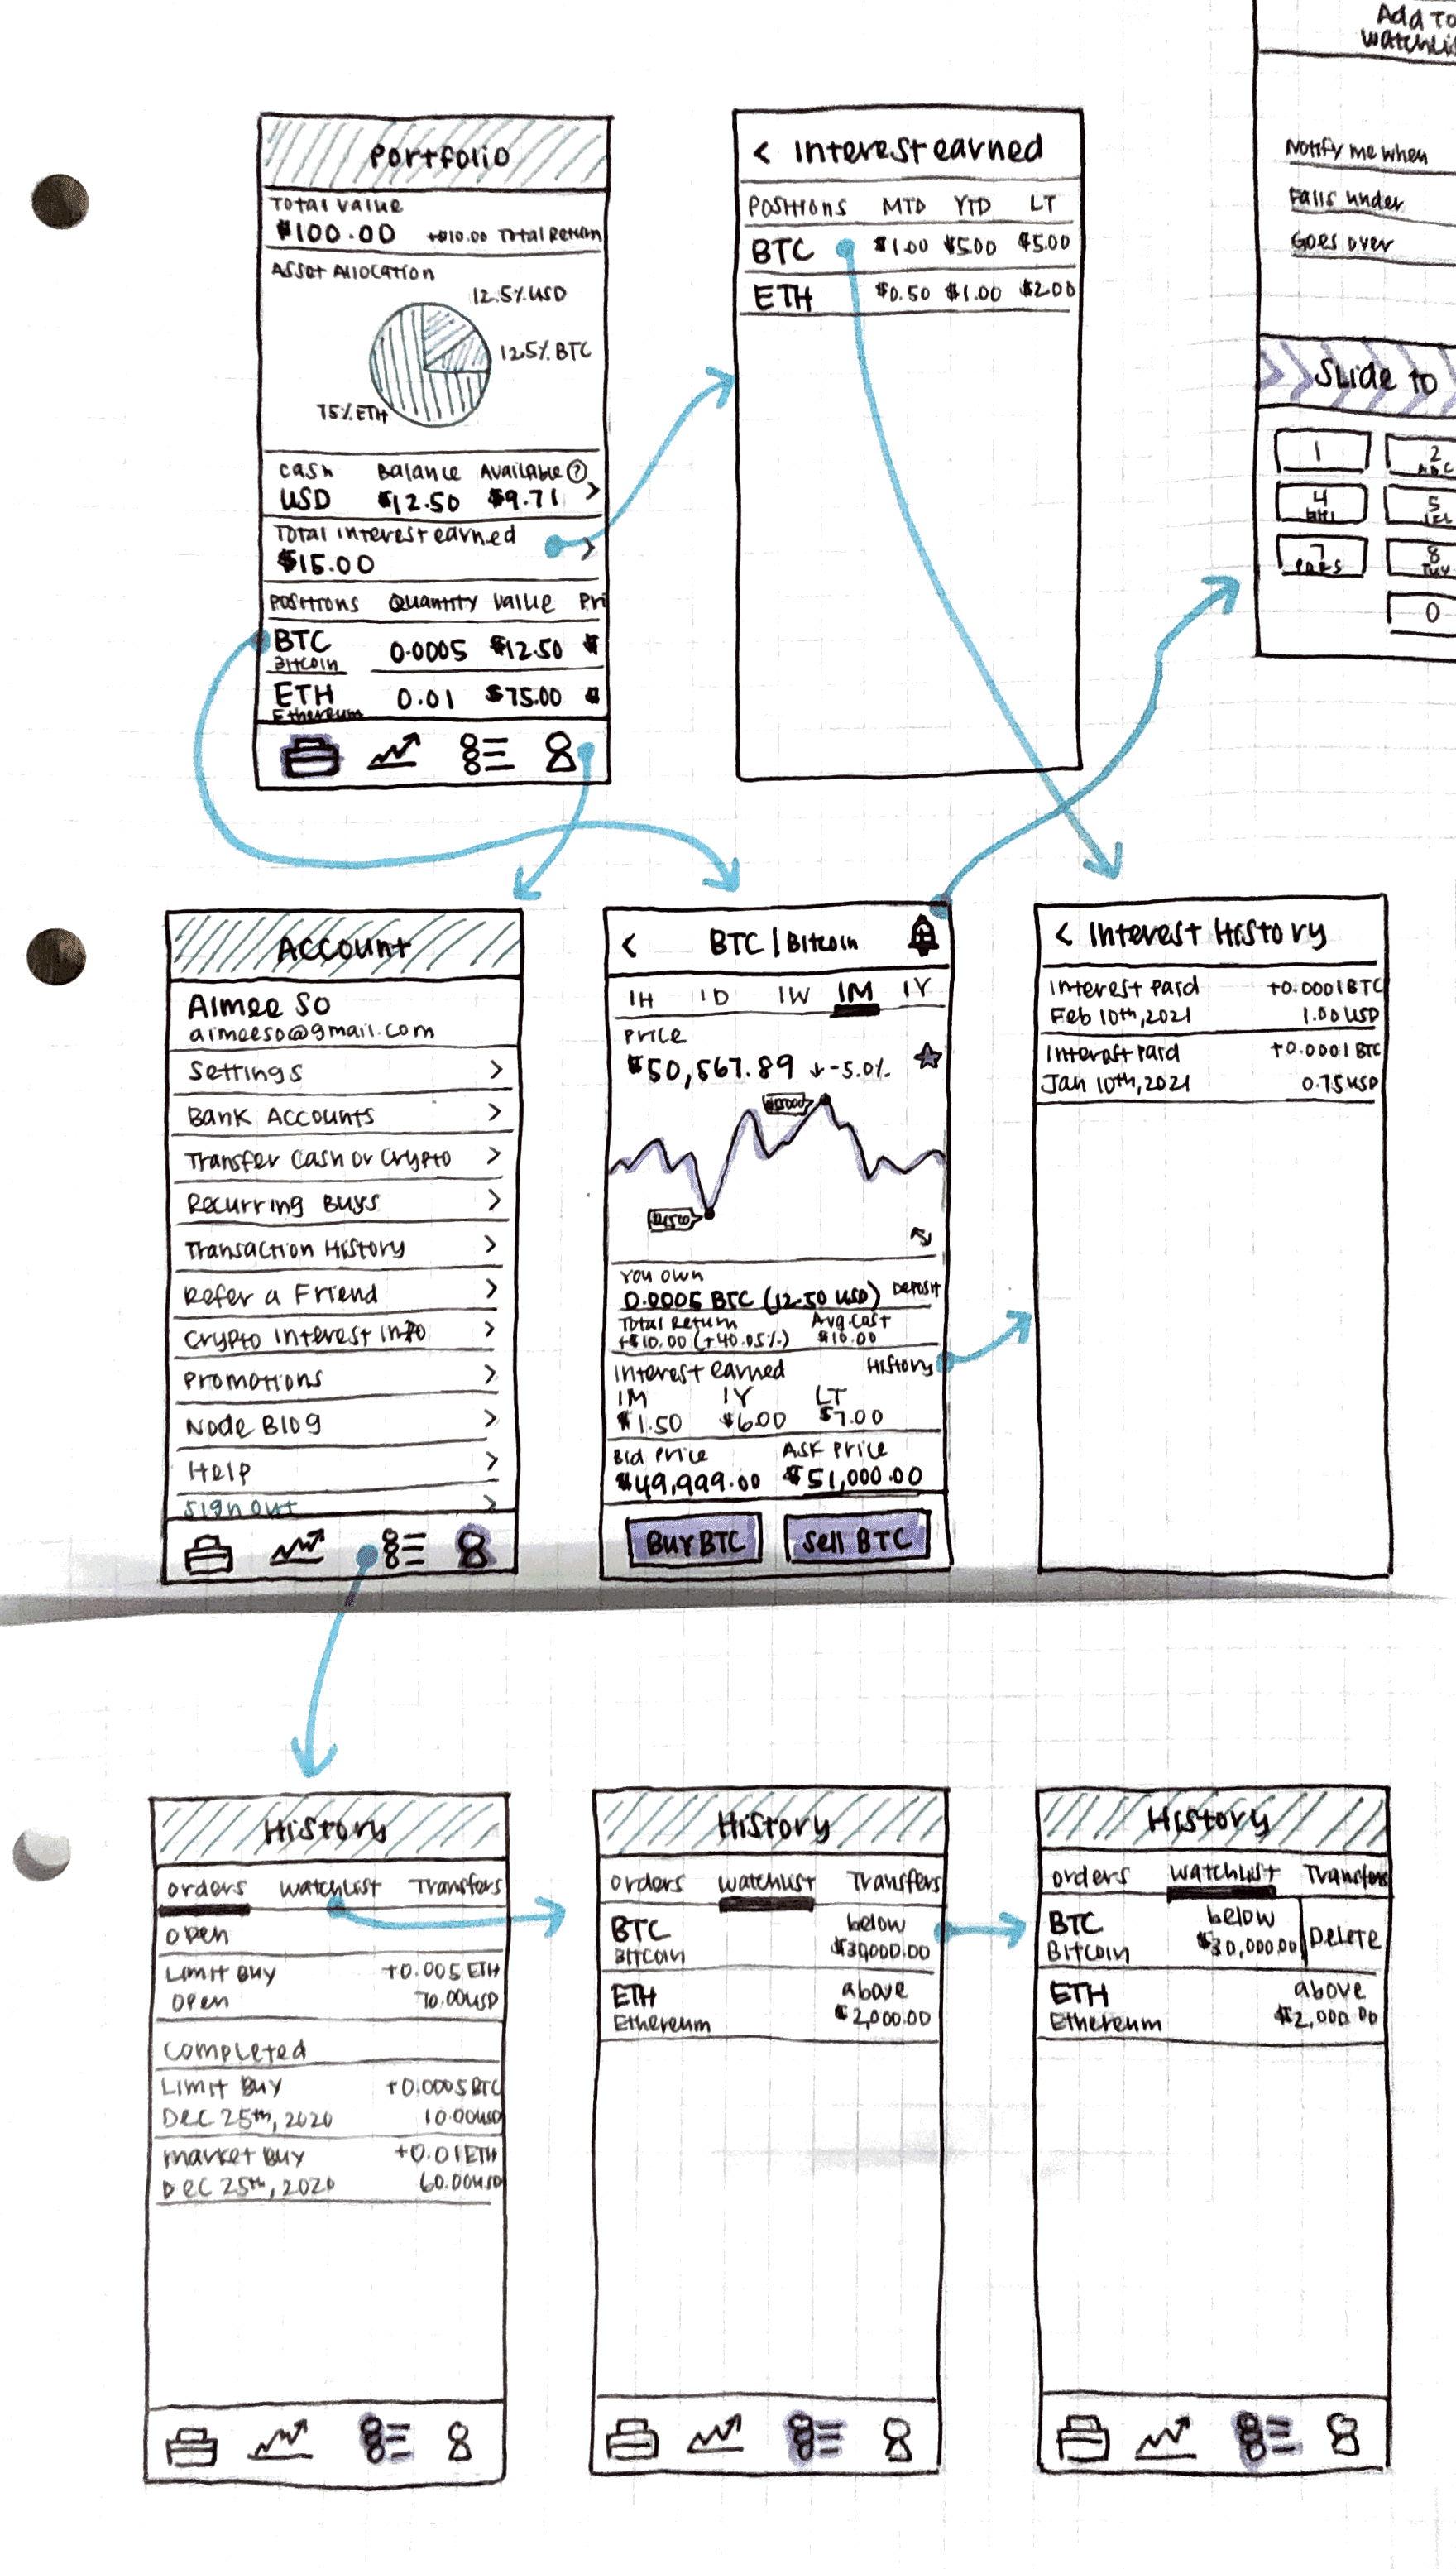 Portfolio
Total Value
$100.00 +$10.00 Total Return
Asset Allocation
12.5% USD
12.5% BTC
75% ETH
Cash Balance Available ?
USD $12.50 $9.71 >
Total interest earned
$15.00 >
Positions Quantity Value Pri
BTC 0.0005 $12.50 $
Bitcoin
ETH 0.01 $75.00 $
Ethereum
< Interest earned
Positions MTD YTD LT
BTC $1.00 $5.00 $5.00
ETH $0.50 $1.00 $2.00
Add To
Watchli
Notify me when
Falls under
Goes over
Slide to
1 2
ABC
4 5
GHI JKL
7 8
PQRS TUV
0
Account
Aimee So
aimeeso@gmail.com
Settings >
Bank Accounts >
Transfer Cash or Crypto >
Recurring Buys >
Transaction History >
Refer a Friend >
Crypto Interest Info >
Promotions >
Node Blog >
Help >
Sign out >
< BTC | Bitcoin
1H 1D 1W 1M 1Y
Price
$50,567.89 ↓-5.0%
You own
0.0005 BTC (12.50 USD) Deposit
Total Return Avg. Cost
+$10.00 (+40.05%) $10.00
Interest earned History
1M 1Y LT
$1.50 $6.00 $7.00
Bid Price Ask Price
$49,999.00 $51,000.00
Buy BTC Sell BTC
< Interest History
Interest Paid +0.0001 BTC
Feb 10th, 2021 1.00 USD
Interest Paid +0.0001 BTC
Jan 10th, 2021 0.75 USD
History
Orders Watchlist Transfers
Open
Limit Buy +0.005 ETH
Open 70.00 USD
Completed
Limit Buy +0.0005 BTC
Dec 25th, 2020 10.00 USD
Market Buy +0.01 ETH
Dec 25th, 2020 60.00 USD
History
Orders Watchlist Transfers
BTC below
Bitcoin $30,000.00
ETH above
Ethereum $2,000.00
History
Orders Watchlist Transfers
BTC below
Bitcoin $30,000.00 Delete
ETH above
Ethereum $2,000.00